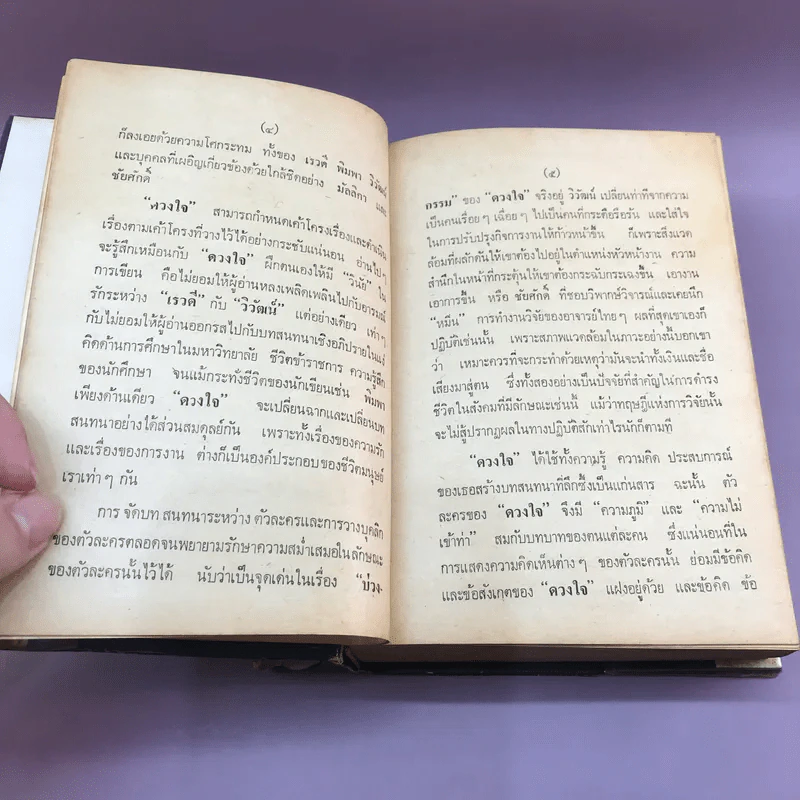 (๔)
ก็ลงเอยด้วยความโศกระทม ทั้งของ เรวดี พิมพา วิวัฒน์
และบุคคลที่เผอิญเกี่ยวข้องด้วยใกล้ชิดอย่าง มัลลิกา และ
ชัยศักดิ์
"ดวงใจ" สามารถกำหนดเค้าโครงเรื่องและดำเนิน
เรื่องตามเค้าโครงที่วางไว้ได้อย่างกระชับแน่นอน อ่านไป ๆ
จะรู้สึกเหมือนกับ "ดวงใจ" ฝึกตนเองให้มี "วินัย" ใน
การเขียน คือไม่ยอมให้ผู้อ่านหลงเพลิดเพลินไปกับอารมณ์
รักระหว่าง "เรวดี" กับ "วิวัฒน์" แต่อย่างเดียว เท่า ๆ
กับไม่ยอมให้ผู้อ่านออกรสไปกับบทสนทนาเชิงอภิปรายในแง่
คิดด้านการศึกษาในมหาวิทยาลัย ชีวิตข้าราชการ ความรู้สึก
ของนักศึกษา จนแม้กระทั่งชีวิตของนักเขียนเช่น พิมพา
เพียงด้านเดียว "ดวงใจ" จะเปลี่ยนฉากและเปลี่ยนบท
สนทนาอย่างได้ส่วนสมดุลย์กัน เพราะทั้งเรื่องของความรัก
และเรื่องของการงาน ต่างก็เป็นองค์ประกอบของชีวิตมนุษย์
เราเท่า ๆ กัน
การ จัดบท สนทนาระหว่าง ตัวละครและการวางบุคลิก
ของตัวละครตลอดจนพยายามรักษาความสม่ำเสมอในลักษณะ
ของตัวละครนั้นไว้ได้ นับว่าเป็นจุดเด่นในเรื่อง "บ่วง-
(๕)
กรรม" ของ "ดวงใจ" จริงอยู่ วิวัฒน์ เปลี่ยนท่าทีจากความ
เป็นคนเรื่อย ๆ เฉื่อย ๆ ไปเป็นคนที่กระตือรือร้น และใส่ใจ
ในการปรับปรุงกิจการงานให้ก้าวหน้าขึ้น ก็เพราะสิ่งแวด
ล้อมที่ผลักดันให้เขาต้องไปอยู่ในตำแหน่งหัวหน้างาน ความ
สำนึกในหน้าที่กระตุ้นให้เขาต้องกระฉับกระเฉงขึ้น เอางาน
เอาการขึ้น หรือ ชัยศักดิ์ ที่ชอบวิพากษ์วิจารณ์และเคยนึก
"หมิ่น" การทำงานวิจัยของอาจารย์ไทย ๆ ผลที่สุดเขาเองก็
ปฏิบัติเช่นนั้น เพราะสภาพแวดล้อมในภาวะอย่างนั้นบอกเขา
ว่า เหมาะควรที่จะกระทำด้วยเหตุว่ามันจะนำทั้งเงินและชื่อ
เสียงมาสู่ตน ซึ่งทั้งสองอย่างเป็นปัจจัยที่สำคัญในการดำรง
ชีวิตในสังคมที่มีลักษณะเช่นนี้ แม้ว่าทฤษฎีแห่งการวิจัยนั้น
จะไม่สู้ปรากฏผลในทางปฏิบัติสักเท่าไรนักก็ตามที
"ดวงใจ" ได้ใช้ทั้งความรู้ ความคิด ประสบการณ์
ของเธอสร้างบทสนทนาที่ลึกซึ้งเป็นแก่นสาร ฉะนั้น ตัว
ละครของ "ดวงใจ" จึงมี "ความภูมิ" และ "ความไม่
เข้าท่า" สมกับบทบาทของตนแต่ละคน ซึ่งแน่นอนที่ใน
การแสดงความคิดเห็นต่าง ๆ ของตัวละครนั้น ย่อมมีข้อคิด
และข้อสังเกตของ "ดวงใจ" แฝงอยู่ด้วย และข้อคิด ข้อ